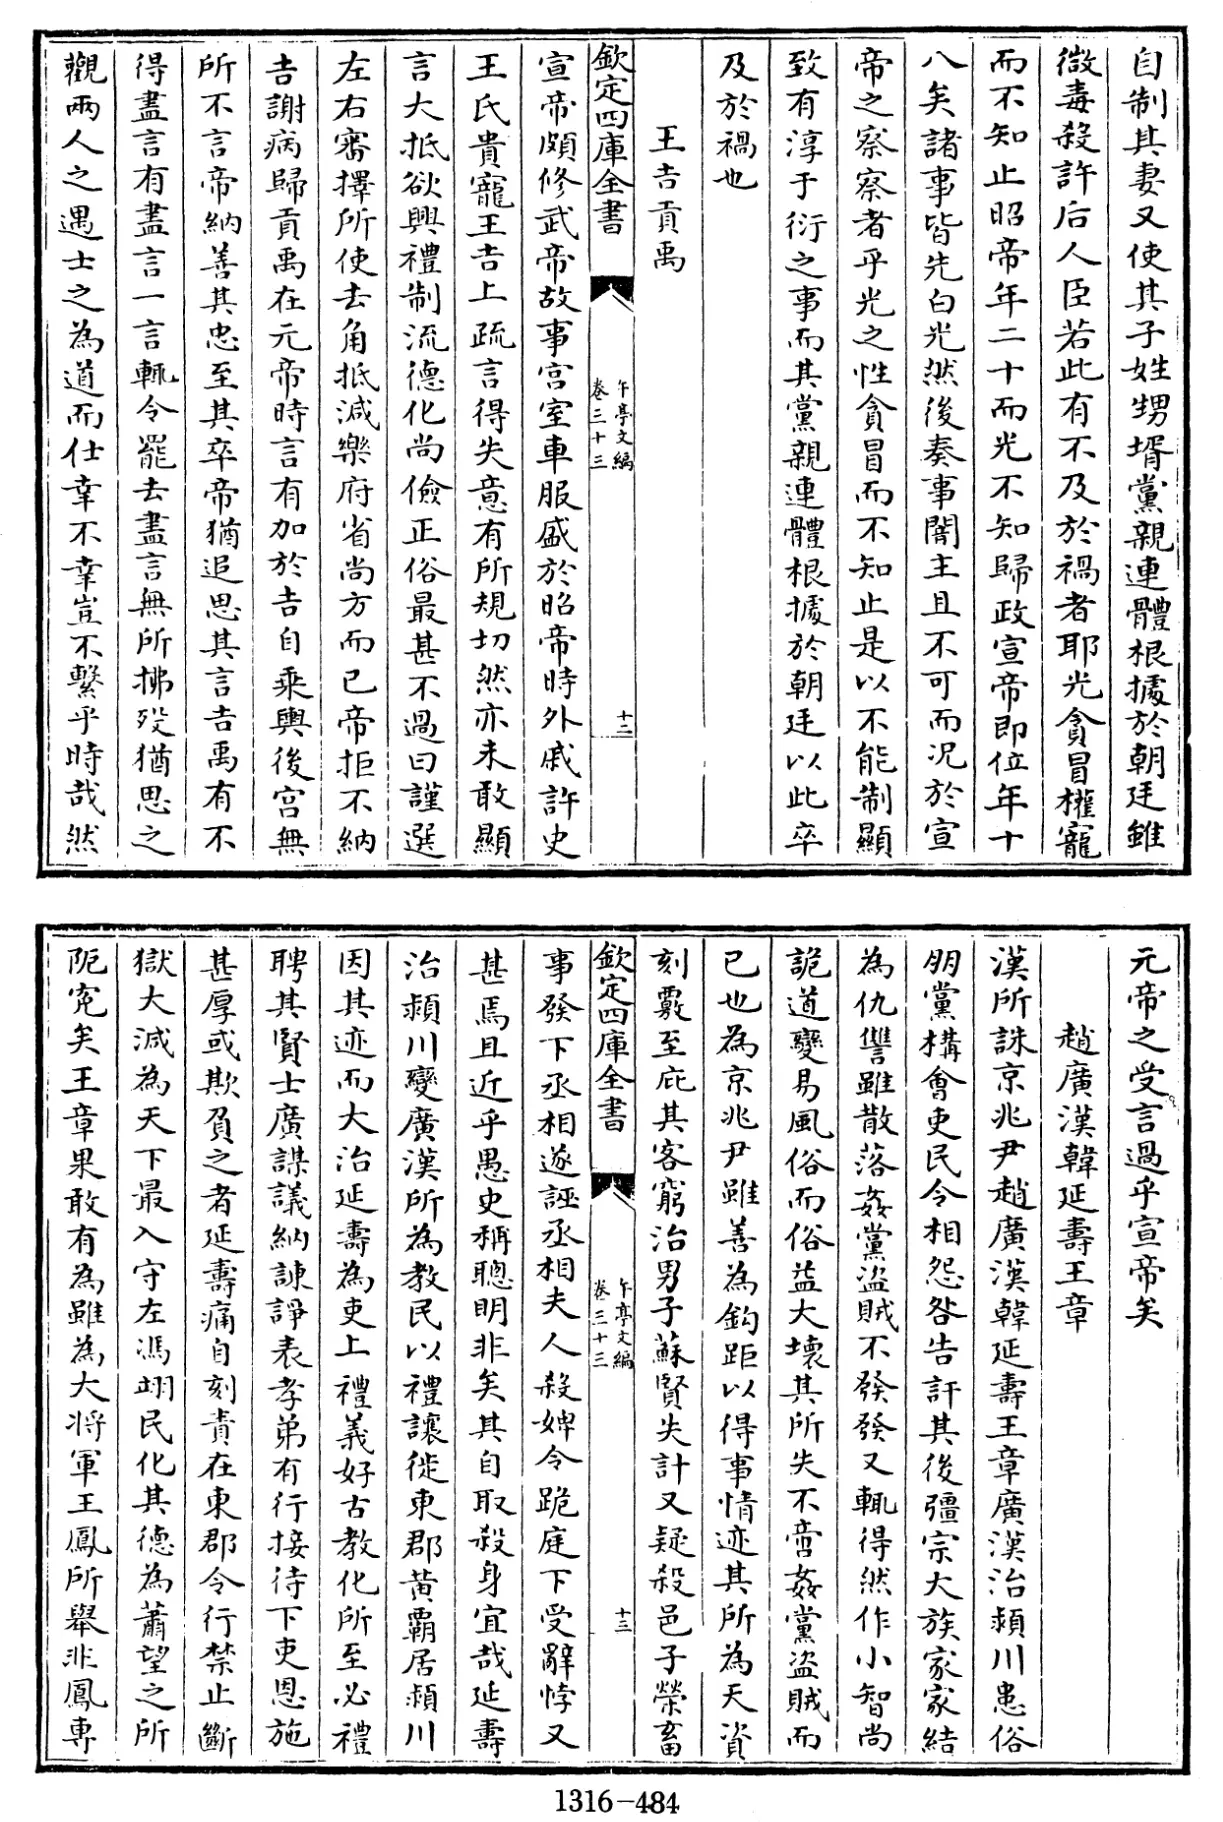 自制其妻又使其子姓甥壻黨親連體根據於朝廷雖
微毒殺許后人臣若此有不及於禍者耶光貪冒權寵
而不知止昭帝年二十而光不知歸政宣帝即位年十
八矣諸事皆先白光然後奏事闇主且不可而况於宣
帝之察察者乎光之性貪冒而不知止是以不能制顯
致有淳于衍之事而其黨親連體根據於朝廷以此卒
及於禍也
王吉貢禹
欽定四庫全書
午亭文編
卷三十三
十二
宣帝頗修武帝故事宮室車服盛於昭帝時外戚許史
王氏貴寵王吉上疏言得失意有所規切然亦未敢顯
言大抵欲興禮制流德化尚儉正俗最甚不過曰謹選
左右審擇所使去角抵減樂府省尚方而已帝拒不納
吉謝病歸貢禹在元帝時言有加於吉自乘輿後宮無
所不言帝納善其忠至其卒帝猶追思其言吉禹有不
得盡言有盡言一言輒令罷去盡言無所拂殁猶思之
觀兩人之遇士之為道而仕幸不幸豈不繫乎時哉然
元帝之受言過乎宣帝矣
趙廣漢韓延壽王章
漢所誅京兆尹趙廣漢韓延壽王章廣漢治潁川患俗
朋黨構會吏民令相怨咎告訐其後彊宗大族家家結
為仇讐雖散落姦黨盜賊不發發又輒得然作小智尚
詭道變易風俗而俗益大壞其所失不啻姦黨盜賊而
已也為京兆尹雖善為鈎距以得事情迹其所為天資
刻覈至庇其客窮治男子蘇賢失計又疑殺邑子榮畜
欽定四庫全書
午亭文編
卷三十三
十三
事發下丞相遂誣丞相夫人殺婢令跪庭下受辭悖又
甚焉且近乎愚史稱聰明非矣其自取殺身宜哉延壽
治潁川變廣漢所為教民以禮讓徙東郡黄霸居潁川
因其迹而大治延壽為吏上禮義好古教化所至必禮
聘其賢士廣謀議納諫諍表孝弟有行接待下吏恩施
甚厚或欺負之者延壽痛自刻責在東郡令行禁止斷
獄大減為天下最入守左馮翊民化其德為蕭望之所
阨寃矣王章果敢有為雖為大將軍王鳳所舉非鳳專
1316-484